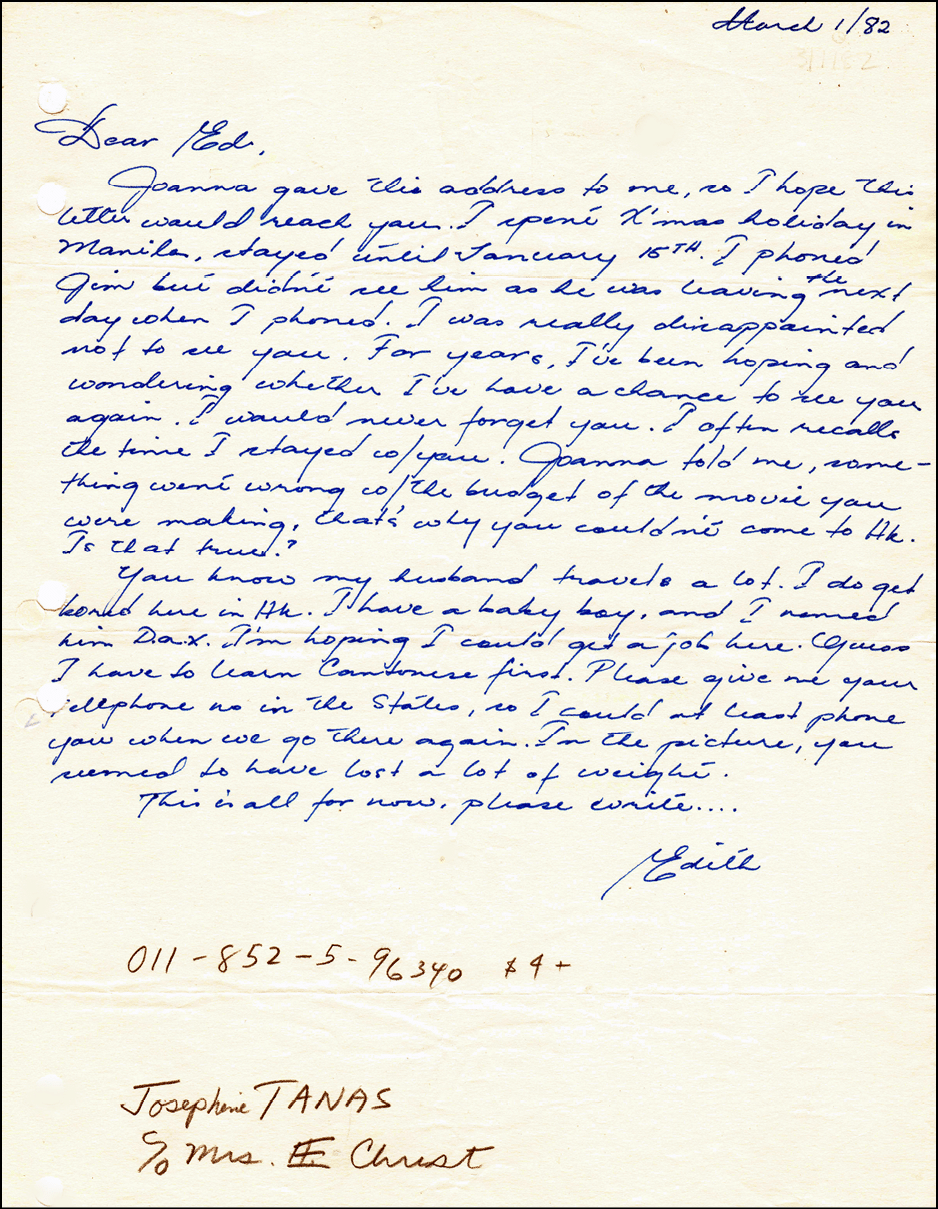 March 1/82
Dear Ed,
Joanna gave this address to me, so I hope this
letter would reach you. I spent X'mas holiday in
Manila, stayed until January 15TH. I phoned
Jim but didn't see him as he was leaving the next
day when I phoned. I was really disappointed
not to see you. For years, I've been hoping and
wondering whether I've have a chance to see you
again. I would never forget you. I often recalls
the time I stayed w/you. Joanna told me, some-
thing went wrong w/the budget of the movie you
were making, that's why you couldn't come to Hk.
Is that true?
You know my husband travels a lot. I do get
bored here in Hk. I have a baby boy, and I named
him Dax. I'm hoping I could get a job here. Guess
I have to learn Cantonese first. Please give me your
telephone no in the States, so I could at least phone
you when we go there again. In the picture, you
seemed to have lost a lot of weight.
This is all for now, please write....
Edith
011-852-5-96340 $4+
Josephine TANAS
c/o Mrs. E Christ